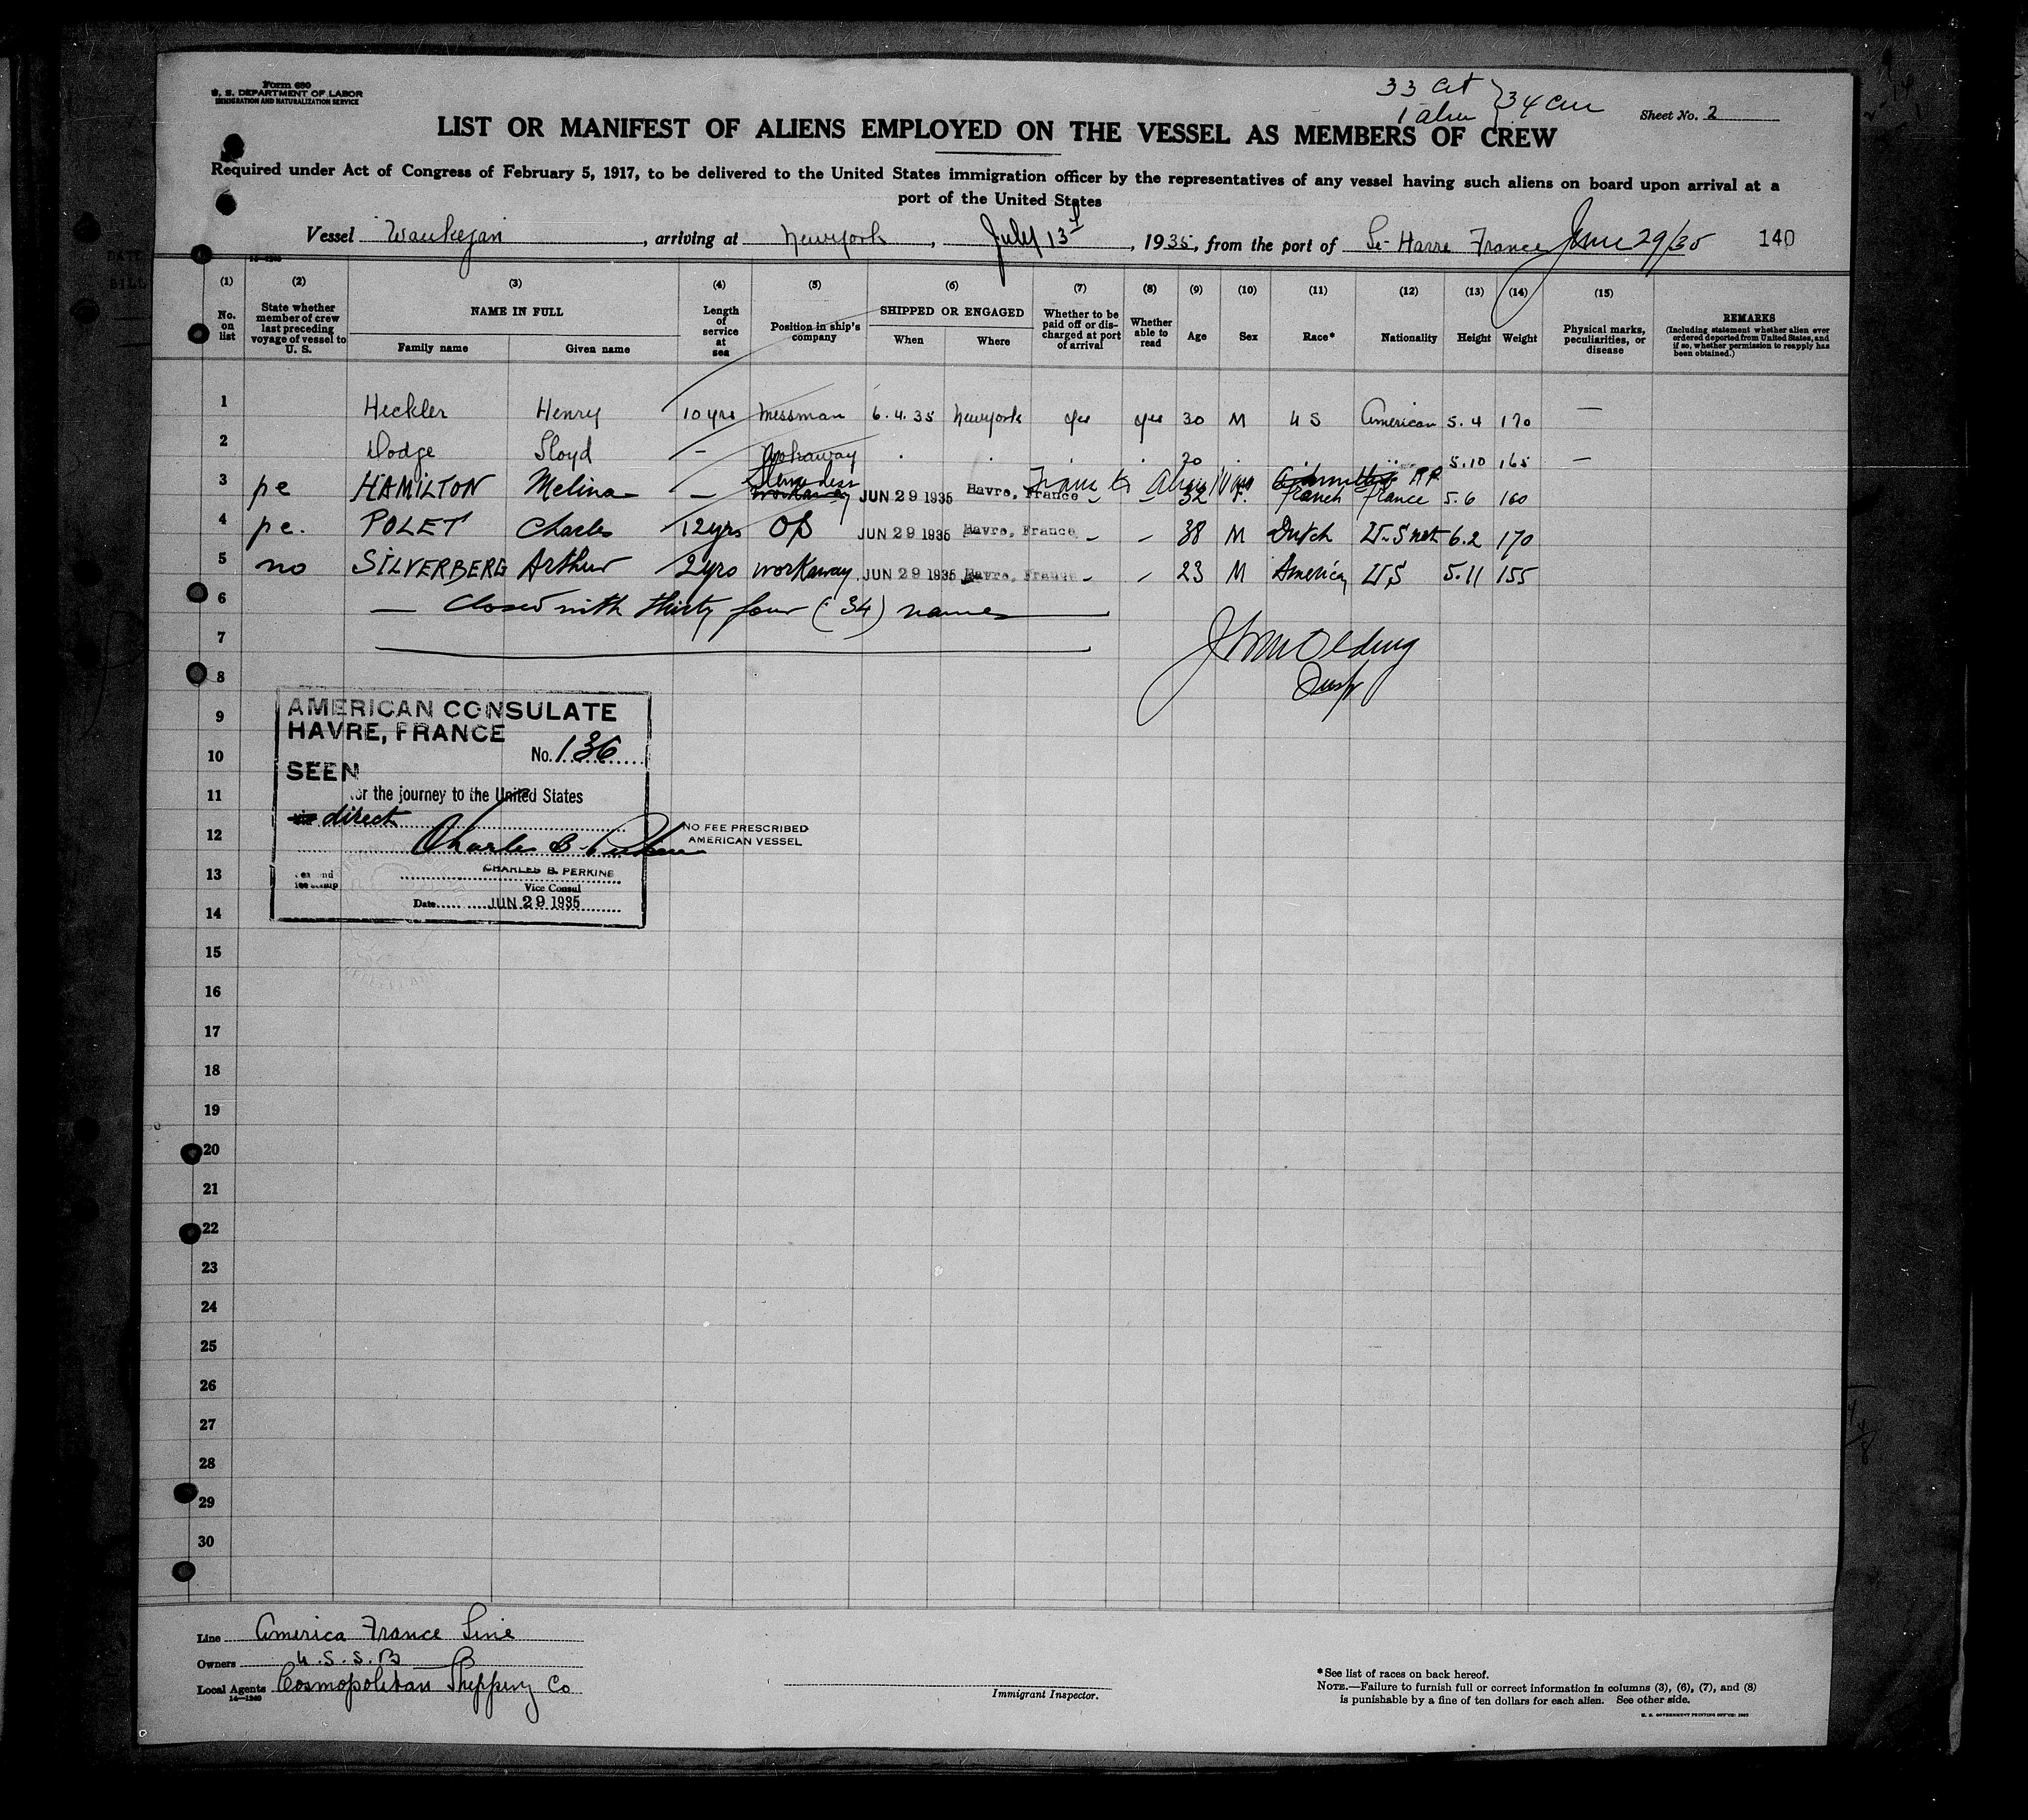 Form 680
U. S. DEPARTMENT OF LABOR
IMMIGRATION AND NATURALIZATION SERVICE
33 Cit
1 alien } 34 crew
Sheet No. 2
LIST OR MANIFEST OF ALIENS EMPLOYED ON THE VESSEL AS MEMBERS OF CREW
Required under Act of Congress of February 5, 1917, to be delivered to the United States immigration officer by the representatives of any vessel having such aliens on board upon arrival at a
port of the United States
Vessel Waukegan, arriving at New York, July 13, 1935, from the port of Le Havre France June 29/35 140
(1) (2) (3) (4) (5) (6) (7) (8) (9) (10) (11) (12) (13) (14) (15)
No. on list
State whether member of crew last preceding voyage of vessel to U. S.
NAME IN FULL
Family name Given name
Length of service at sea
Position in ship's company
SHIPPED OR ENGAGED
When Where
Whether to be paid off or discharged at port of arrival
Whether able to read
Age Sex Race* Nationality Height Weight
Physical marks, peculiarities, or disease
REMARKS
(Including statement whether alien ever ordered deported from United States, and if so, whether permission to reapply has been obtained.)
1 Heckler Henry 10 yrs messman 6.4.35 New York yes yes 30 M U S American 5.4 170 —
2 Dodge Lloyd – Workaway 20 5.10 165 —
3 pe HAMILTON Melina – Stewardess workaway JUN 29 1935 Havre, France 32 F. French France 5.6 160
4 pe. POLET Charles 12 yrs OS JUN 29 1935 Havre, France – – 38 M Dutch U-S nat 6.2 170
5 no SILVERBERG Arthur 2 yrs workaway JUN 29 1935 Havre, France – – 23 M America U,S 5.11 155
6 — Closed with thirty four (34) names
7
8
9
10
11
12
13
14
15
16
17
18
19
20
21
22
23
24
25
26
27
28
29
30
Insp
AMERICAN CONSULATE
HAVRE, FRANCE
No. 136
SEEN
for the journey to the United States
direct
Charles B. Perkins
NO FEE PRESCRIBED
AMERICAN VESSEL
CHARLES B. PERKINS
Vice Consul
Date JUN 29 1935
Line America France Line
Owners U.S.S.B
Local Agents Cosmopolitan Shipping Co
14—1240
Immigrant Inspector.
*See list of races on back hereof.
NOTE.—Failure to furnish full or correct information in columns (3), (6), (7), and (8)
is punishable by a fine of ten dollars for each alien. See other side.